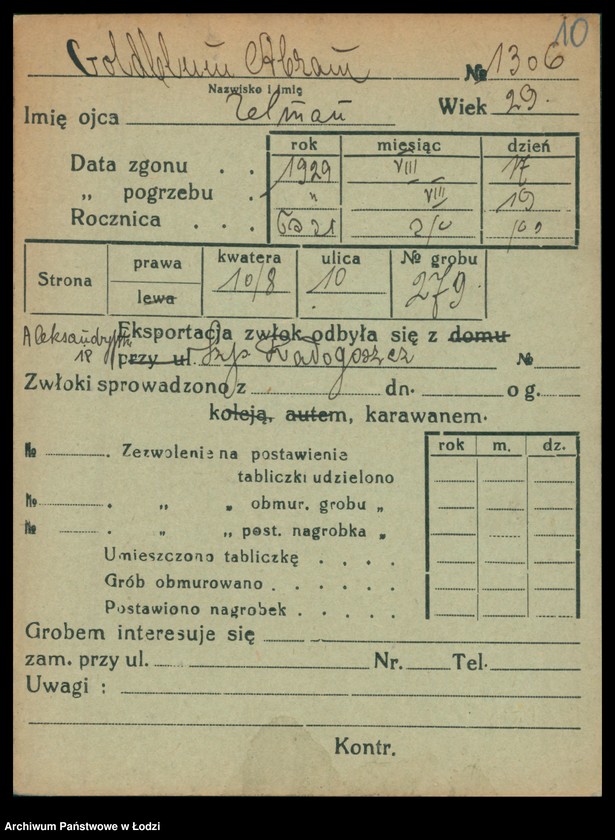 10
Goldblum Abram № 1306
Nazwisko i Imię
Imię ojca Zelman Wiek 29.
rok miesiąc dzień
Data zgonu . . 1929 VIII 17
„ pogrzebu . " VIII 19
Rocznica . . .
Strona prawa kwatera ulica № grobu
lewa 10/8 10 279.
Aleksandryjska Eksportacja zwłok odbyła się z domu
18 przy ul. Szp. Radogoszcz №
Zwłoki sprowadzono z dn. o g.
koleją, autem, karawanem.
rok m. dz.
№ . Zezwolenie na postawienie
tabliczki udzielono
№ . „ „ obmur. grobu „
№ . „ „ post. nagrobka „
Umieszczono tabliczkę . . . .
Grób obmurowano . . . . .
Postawiono nagrobek . . . . .
Grobem interesuje się
zam. przy ul. Nr. Tel.
Uwagi :
Kontr.
Archiwum Państwowe w Łodzi